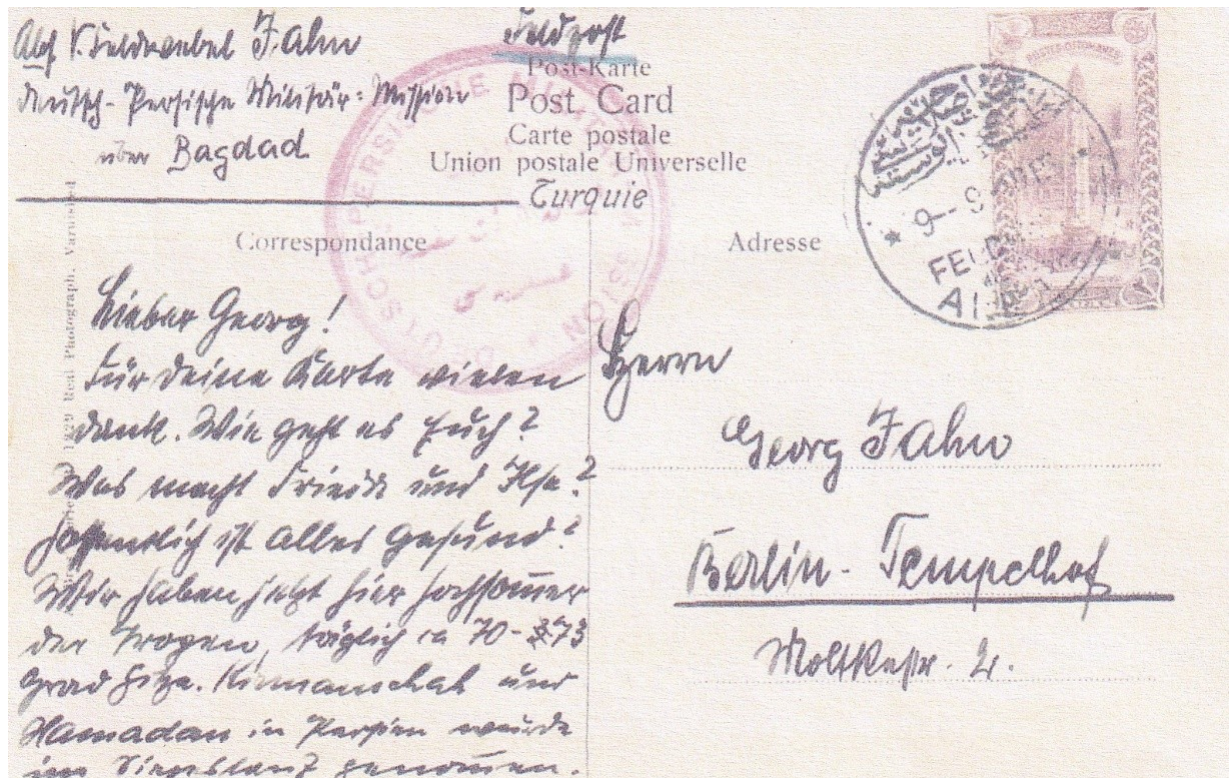 Abs. V. Feldwebel F. Jahn
Deutsch-Persische Militär-Mission
über Bagdad
Feldpost
Post-Karte
Post Card
Carte postale
Union postale Universelle
Turquie
DEUTSCH-PERSISCHE MISSION
Correspondance
Adresse
9 - 9
FELD
Real Photograph.
Lieber Georg!
Für deine Karte vielen
Dank. Wie geht es Euch?
Was macht Frieda und Ilse?
Hoffentlich ist Alles gesund?
Wir haben jetzt hier Hochsommer
der Tropen, täglich ca 70-73
Grad Hitze. Kirmanschah und
Hamadan in Persien wurde
im Siegeslauf genommen.
Herrn
Georg Jahn
Berlin-Tempelhof
Moltkestr. 2.